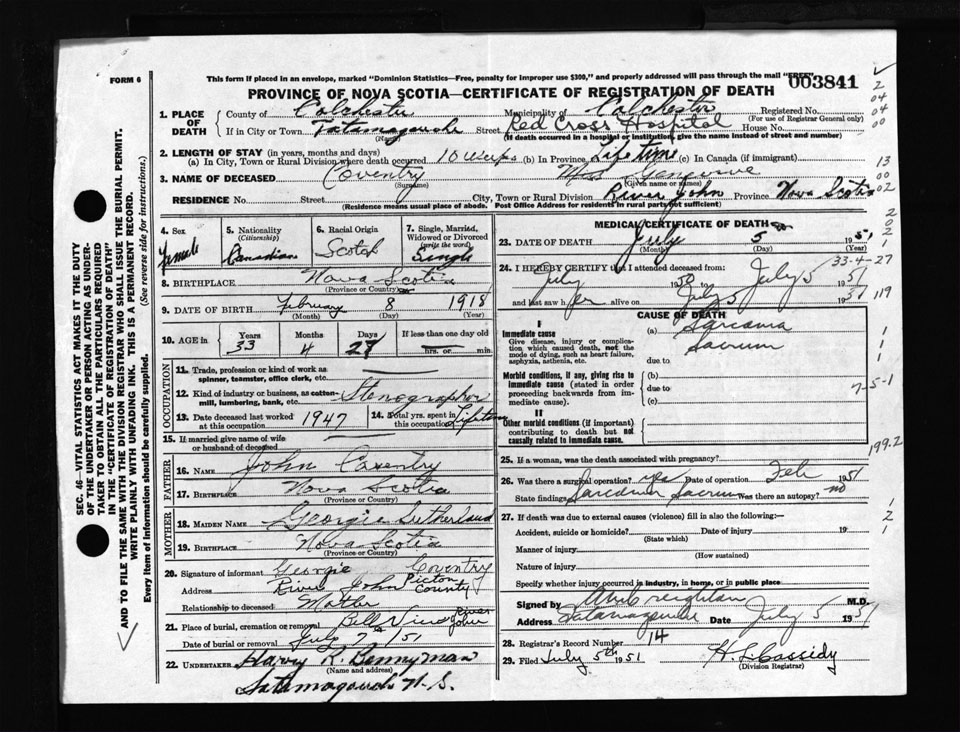 FORM 6
This form if placed in an envelope, marked "Dominion Statistics—Free, penalty for improper use $300," and properly addressed will pass through the mail "FREE"
003841
PROVINCE OF NOVA SCOTIA—CERTIFICATE OF REGISTRATION OF DEATH
1. PLACE OF DEATH
County of Colchester Municipality of Colchester Registered No.
(For use of Registrar General only)
If in City or Town Tatamagouche Street Red Cross Hospital House No.
(If death occurred in a hospital or institution, give the name instead of street and number)
2. LENGTH OF STAY (in years, months and days)
(a) In City, Town or Rural Division where death occurred 10 weeks (b) In Province Life time (c) In Canada (if immigrant)
3. NAME OF DECEASED Coventry Miss Genevieve
(Surname) (Given name or names)
RESIDENCE No. Street City, Town or Rural Division River John Province Nova Scotia
(Residence means usual place of abode. Post Office Address for residents in rural parts not sufficient)
4. Sex Female
5. Nationality (Citizenship) Canadian
6. Racial Origin Scotch
7. Single, Married, Widowed or Divorced (write the word) Single
8. BIRTHPLACE Nova Scotia
(Province or Country)
9. DATE OF BIRTH February 8 1918
(Month) (Day) (Year)
10. AGE in Years 33 Months 4 Days 27 If less than one day old hrs. or min.
OCCUPATION
11. Trade, profession or kind of work as spinner, teamster, office clerk, etc.
12. Kind of industry or business, as cotton-mill, lumbering, bank, etc. Stenographer
13. Date deceased last worked at this occupation 1947
14. Total yrs. spent in this occupation Lifetime
15. If married give name of wife or husband of deceased
FATHER
16. NAME John Coventry
17. BIRTHPLACE Nova Scotia
(Province or Country)
MOTHER
18. MAIDEN NAME Georgie Sutherland
19. BIRTHPLACE Nova Scotia
(Province or Country)
20. Signature of informant Georgie Coventry
Address River John Pictou County
Relationship to deceased Mother
21. Place of burial, cremation or removal Bell View River John
Date of burial or removal July 7th/51
22. UNDERTAKER Harvy R. Bennyman
(Name and address)
Tatamagouche N.S.
MEDICAL CERTIFICATE OF DEATH
23. DATE OF DEATH July 5 1951
(Month) (Day)
33-4-27
24. I HEREBY CERTIFY that I attended deceased from:
July 1950 to July 5 1951
and last saw her alive on July 5 1951
119
CAUSE OF DEATH
I
Immediate cause
Give disease, injury or complication, which caused death, not the mode of dying, such as heart failure, asphyxia, asthenia, etc.
(a) Sarcoma
Sacrum
due to
Morbid conditions, if any, giving rise to immediate cause (stated in order proceeding backwards from immediate cause).
(b)
due to
(c)
7-5-1
II
Other morbid conditions (if important) contributing to death but not causally related to immediate cause.
199.2
25. If a woman, was the death associated with pregnancy?
26. Was there a surgical operation? yes Date of operation Feb 1951
State findings Sarcoma Sacrum Was there an autopsy? no
27. If death was due to external causes (violence) fill in also the following:—
Accident, suicide or homicide? Date of injury 19
(State which)
Manner of injury
(How sustained)
Nature of injury
Specify whether injury occurred in industry, in home, or in public place
Signed by Creighton M.D.
Address Tatamagouche Date July 5 1951
28. Registrar's Record Number 14
29. Filed July 5th 1951 H. L. Cassidy
(Division Registrar)
SEC. 46—VITAL STATISTICS ACT MAKES IT THE DUTY
OF THE UNDERTAKER OR PERSON ACTING AS UNDER-
TAKER TO OBTAIN ALL THE PARTICULARS REQUIRED
IN THE "CERTIFICATE OF REGISTRATION OF DEATH"
AND TO FILE THE SAME WITH THE DIVISION REGISTRAR WHO SHALL ISSUE THE BURIAL PERMIT.
WRITE PLAINLY WITH UNFADING INK. THIS IS A PERMANENT RECORD.
Every item of information should be carefully supplied. (See reverse side for instructions.)
2
04
04
00
13
00
02
2
02
2
1
1
1
1
1
2
1